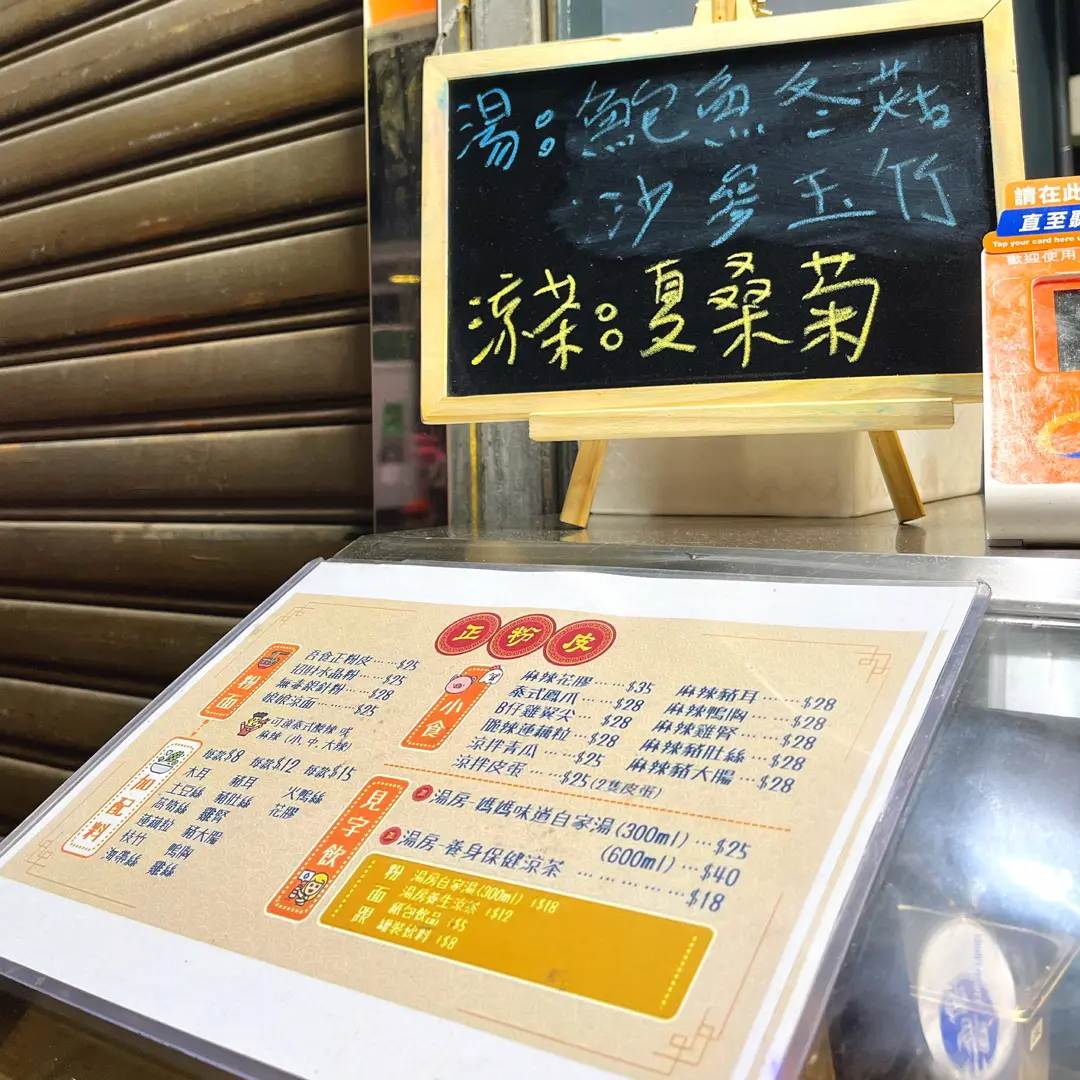 湯：鮑魚冬菇
沙參玉竹
涼茶：夏桑菊
請在此
直至聽
Tap your card here
歡迎使用
正粉皮
粉面
吞食正粉皮……$25
招財水晶粉……$25
無毒銀針粉……$28
娘娘涼面……$25
可滾泰式酸辣 或
麻辣（小、中、大辣）
加配料
每款$8 每款$12 每款$15
木耳 豬耳 火鴨絲
土豆絲 豬肚絲 花膠
萵筍絲 雞腎
蓮藕粒 豬大腸
枝竹 鴨胸
海帶絲 雞絲
小食
麻辣花膠……$35
泰式鳳爪……$28
B仔雞翼尖…$28
脆辣蓮藕粒…$28
涼拌青瓜……$25
涼拌皮蛋……$25(2隻皮蛋)
麻辣豬耳……$28
麻辣鴨胸……$28
麻辣雞腎……$28
麻辣豬肚絲…$28
麻辣豬大腸…$28
見字飲
正 湯房-媽媽味道自家湯(300ml)…$25
(600ml)…$40
正 湯房-養身保健涼茶………………$18
粉面跟
湯房自家湯(300ml) +$18
湯房養生涼茶 +$12
紙包飲品 +$5
罐裝飲料 +$8